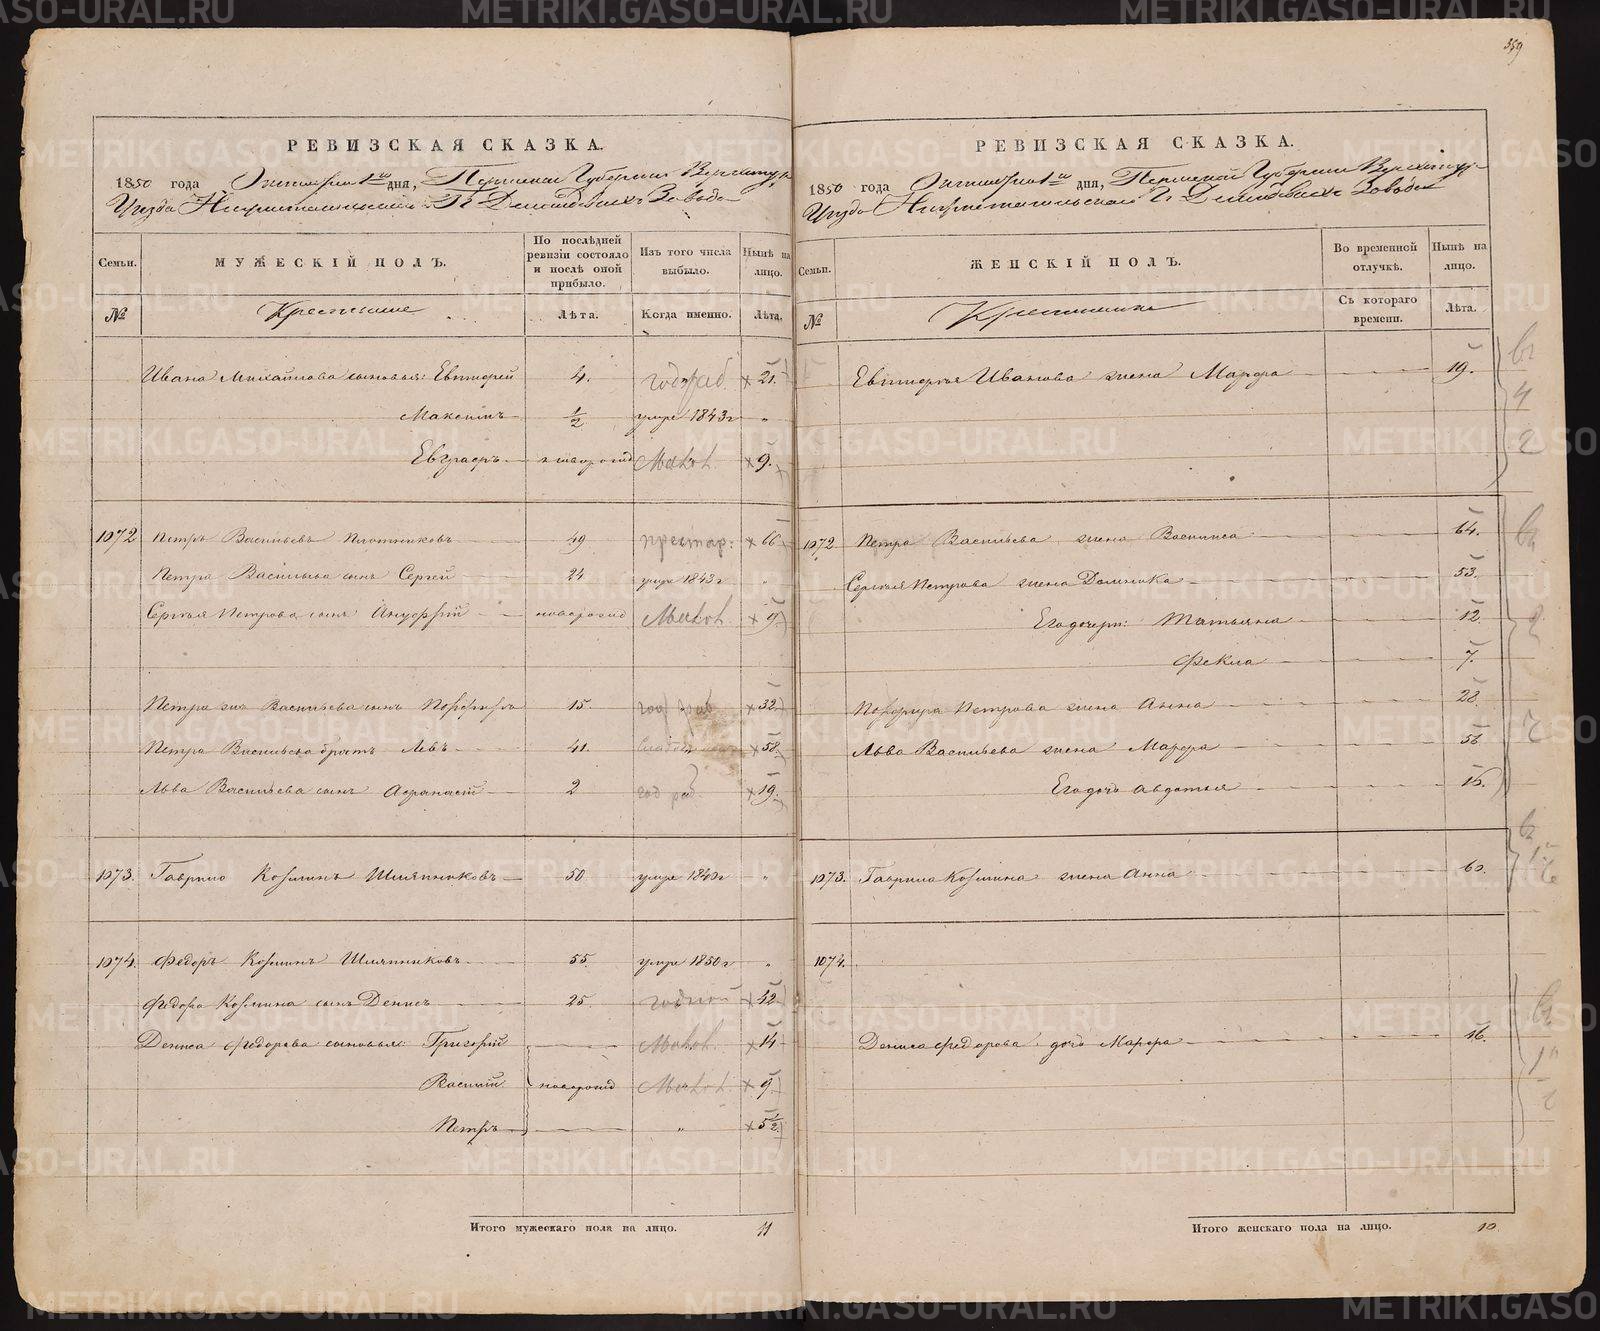 359
РЕВИЗСКАЯ СКАЗКА.
1850 года Октября 1го дня, Пермской Губернии Верхотур.
Уезда Нижнетагильскаго Гг Демидовыхъ Завода
Семьи.
МУЖЕСКІЙ ПОЛЪ.
По послѣдней ревизіи состояло и послѣ оной прибыло.
Изъ того числа выбыло.
Нынѣ на лицо.
№
Крестьяне
Лѣта.
Когда именно.
Лѣта.
Ивана Михайлова сыновья: Евтифей 4. год раб. ×21.
Максимъ ½ умре 1843г "
Евграфъ новорожд Малол. ×9.
1072 Петръ Васильевъ Плотниковъ 49 престар: ×66
Петра Васильева сынъ Сергей 24 умре 1843г "
Сергѣя Петрова сынъ новорожд Малол. ×9
Петра Васильева сынъ Порфиръ 15. год раб. ×32
Петра Васильева братъ Левъ 41. ×58
Льва Васильева сынъ Афанасій 2 год раб. ×19.
1073. Гаврило Козминъ Шляпниковъ 50 умре 1840г "
1074. Федоръ Козминъ Шляпниковъ 55. умре 1850г "
Федора Козмина сынъ Денисъ 25. годной ×42
Дениса Федорова сыновья: Григорій Малол. ×14
Василій новорожд Малол. ×9
Петръ " ×5½
Итого мужескаго пола на лицо. 11
РЕВИЗСКАЯ СКАЗКА.
1850 года Октября 1го дня, Пермской Губернии Верхотур-
Уезда Нижнетагильскаго Гг Демидовыхъ Завода
Семьи.
ЖЕНСКІЙ ПОЛЪ.
Во временной отлучкѣ.
Нынѣ на лицо.
№
Крестьянки
Съ котораго времени.
Лѣта.
Ивановa жена Марфа 19.
1072 Петра Васильева жена Василиса 64.
Сергѣя Петрова жена Домника 53.
Его дочери: Татьяна 12
Фекла 7.
Порфира Петрова жена Анна 28
Льва Васильева жена Марфа 58
Его дочь Авдотья 16.
1073. Гаврила Козмина жена Анна 60.
1074.
Дениса Федорова дочь Марфа 16.
Итого женскаго пола на лицо. 10
METRIKI.GASO-URAL.RU